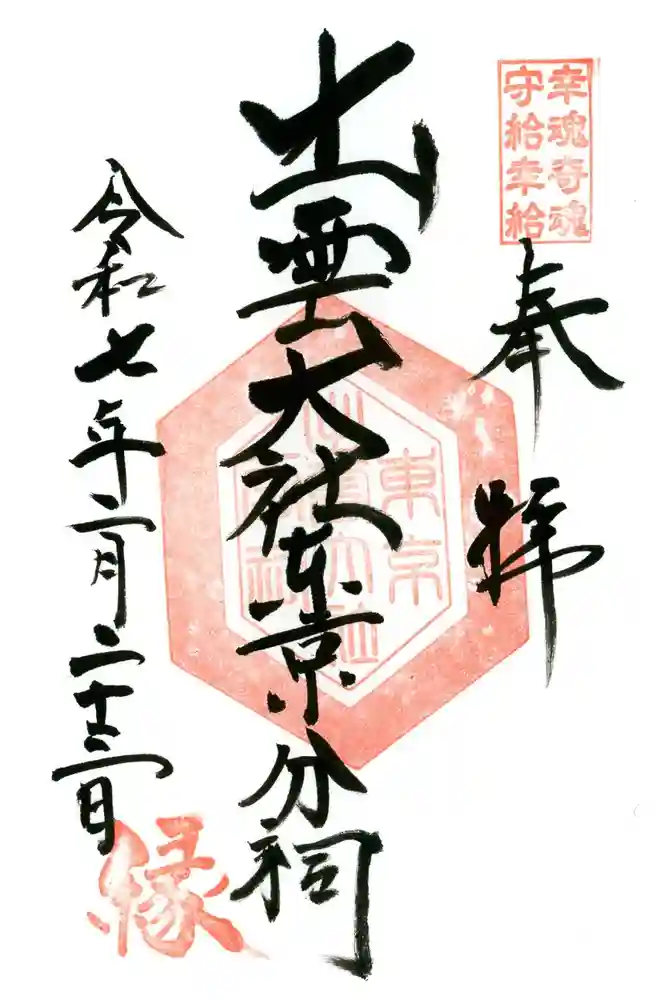 幸魂奇魂
守給幸給
奉拝
出雲大社東京分祠
東京
出雲大社
分祠
令和七年二月二十三日
縁